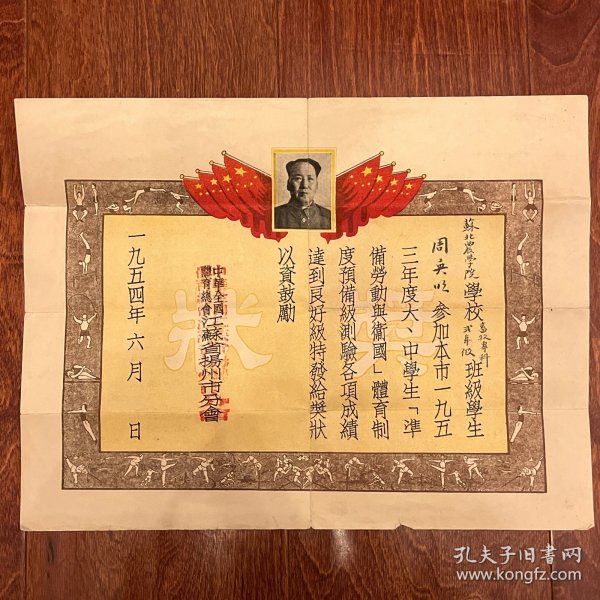 蘇北農學院學校畜牧專科弍年級班級學生
周英明參加本市一九五
三年度大、中學生「準
備勞動與衛國」體育制
度預備級測驗各項成績
達到良好級特發給獎狀
以資鼓勵
中華全國體育總會江蘇省揚州市分會
一九五四年六月　日
獎狀
孔夫子旧书网
www.kongfz.com